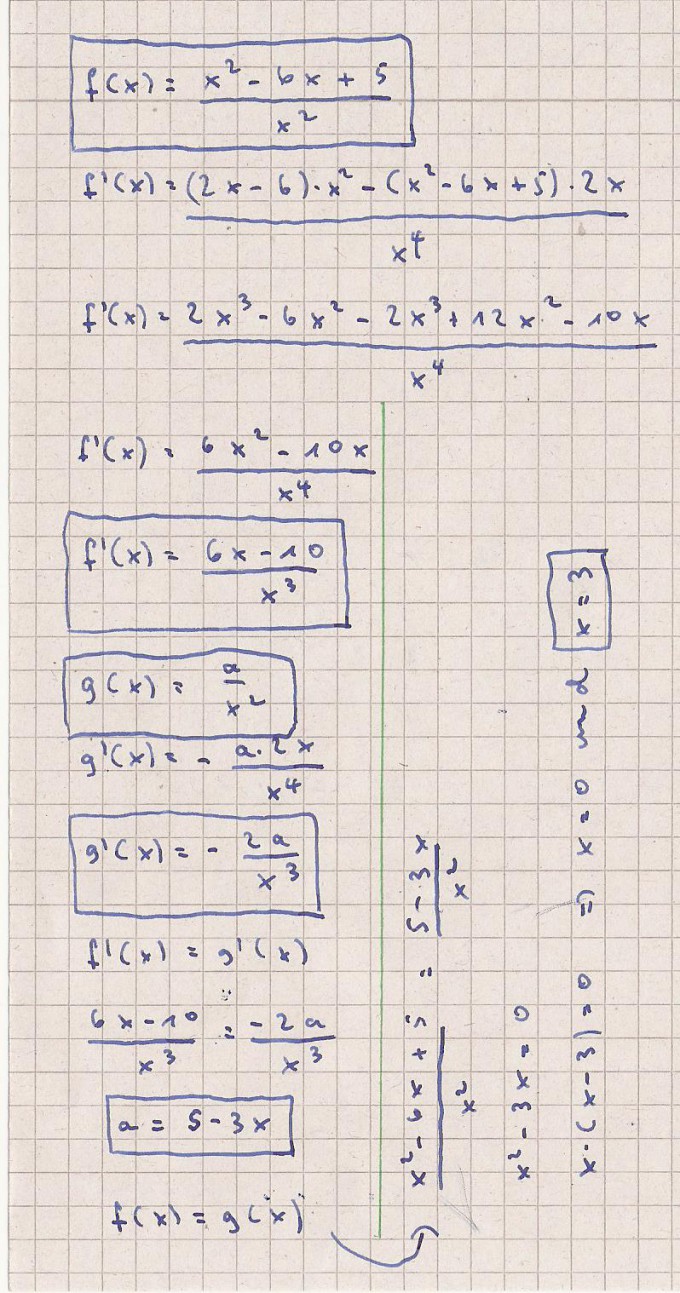 f(x) = (x² - 6x + 5) / x²
f'(x) = ((2x - 6) · x² - (x² - 6x + 5) · 2x) / x⁴
f'(x) = (2x³ - 6x² - 2x³ + 12x² - 10x) / x⁴
f'(x) = (6x² - 10x) / x⁴
f'(x) = (6x - 10) / x³
g(x) = a / x²
g'(x) = - (a · 2x) / x⁴
g'(x) = - 2a / x³
f'(x) = g'(x)
(6x - 10) / x³ = -2a / x³
a = 5 - 3x
f(x) = g(x)
(x² - 6x + 5) / x² = (5 - 3x) / x²
x² - 3x = 0
x · (x - 3) = 0 ⇒ x = 0 und x = 3